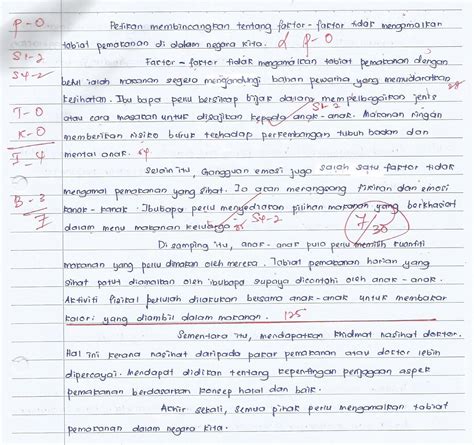 P-0 Petikan membincangkan tentang faktor-faktor tidak mengamalkan
S1-2 tabiat pemakanan di dalam negara kita. α P-0
S4-2 Factor-faktor tidak mengamalkan tabiat pemakanan dengan
betul ialah makanan segera mengandungi bahan pewarna yang memudaratkan
kesihatan. Ibu bapa perlu bersikap bijak dalam mempelbagaikan jenis
S1-2
T-0 atau cara masakan untuk disajikan kepada anak-anak. Makanan ringan
K-0 memberikan risiko buruk terhadap perkembangan tubuh badan dan
I-4 mental anak. 54
Selain itu, Gangguan emosi juga salah satu faktor tidak
B-3 mengamal pemakanan yang sihat. Ia akan merangsang fikiran dan emosi
7 kanak-kanak. Ibubapa perlu menyediakan pilihan makanan yang berkhasiat
dalam menu makanan keluarga S4-2
7/30
Disamping itu, anak-anak pula perlu memilih kuantiti
makanan yang perlu dimakan oleh mereka. Tabiat pemakanan harian yang
sihat patut diamalkan oleh ibubapa supaya dicontohi oleh anak-anak.
Aktiviti fizikal perlulah dilakukan bersama anak-anak untuk membakar
kalori yang diambil dalam makanan. 125
Sementara itu, mendapatkan khidmat nasihat doktor.
Hal ini kerana nasihat daripada pakar pemakanan atau doktor lebih
dipercayai. Mendapat didikan tentang kepentingan penjagaan aspek
pemakanan berdasarkan konsep halal dan baik.
Akhir sekali, semua pihak perlu mengamalkan tabiat
pemakanan dalam negara kita.